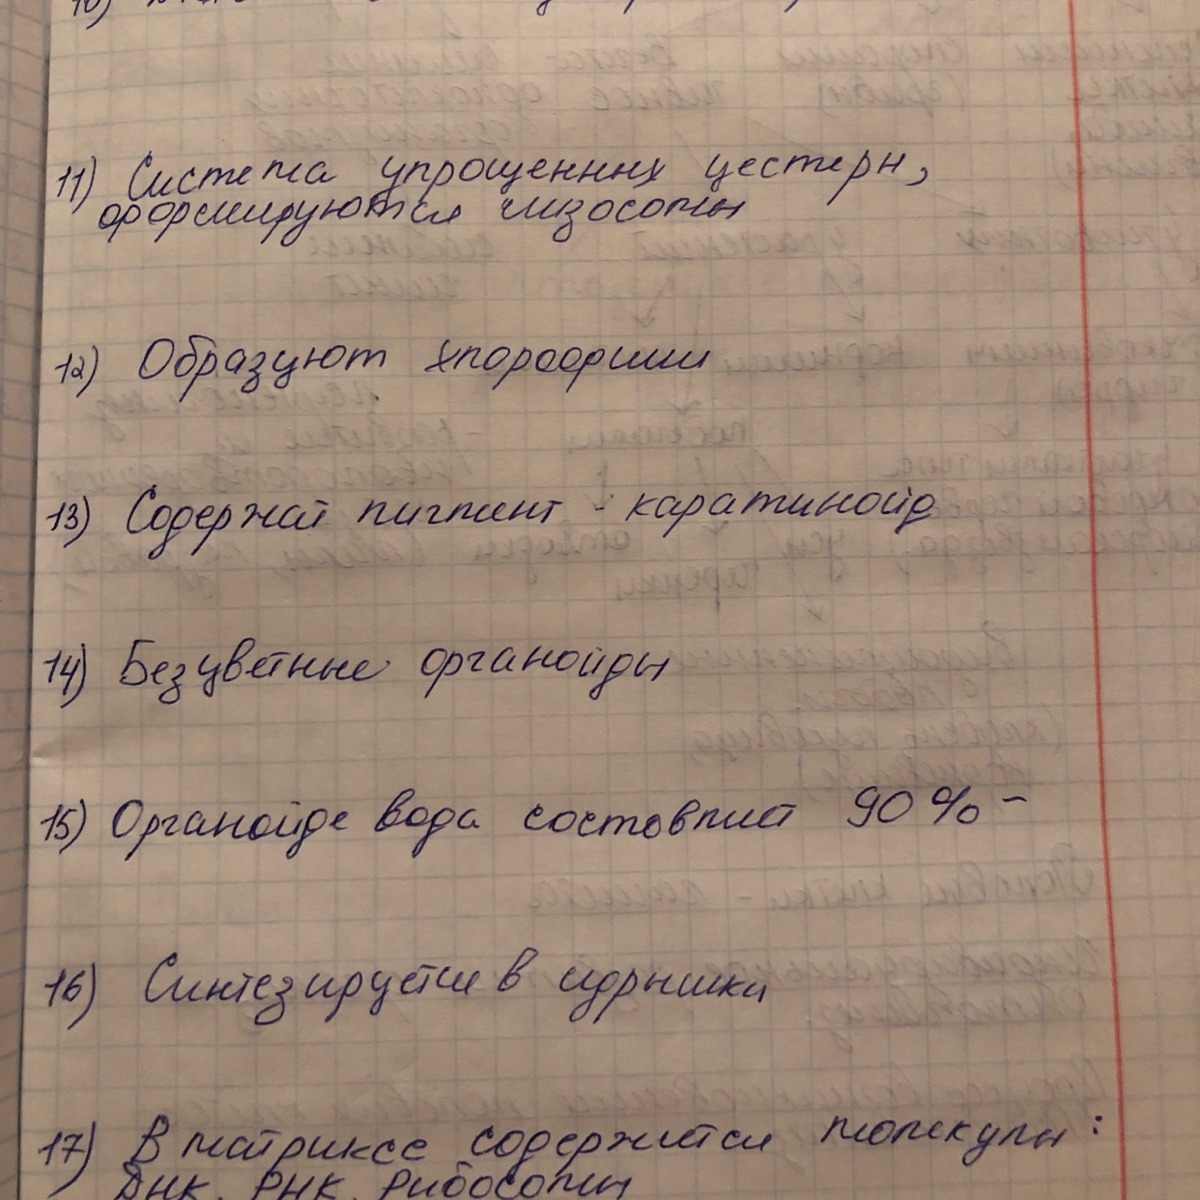 11) Система упрощенных цестерн,
оформируются лизосомы
12) Образуют хлорофиллы
13) Содержат пигмент - каратинойд
14) Безцветные органойды
15) Органойде вода составляет 90% -
16) Синтезируется в ядрышки
17) В матриксе содержится молекулы :
ДНК, РНК, рибосомы